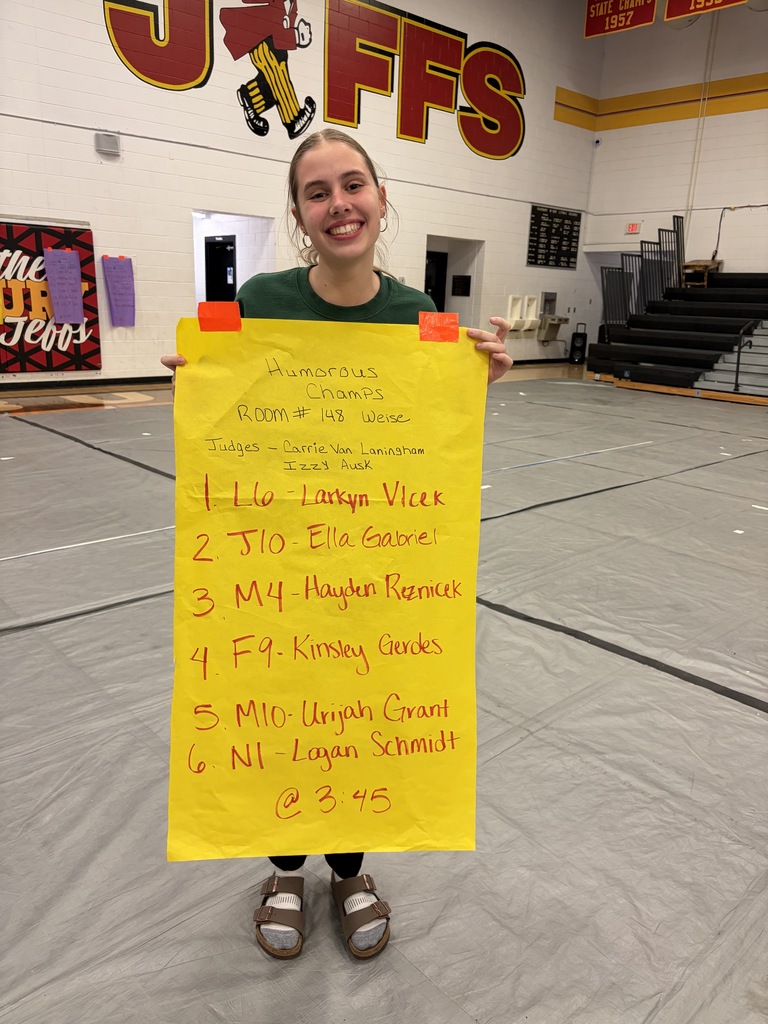 JEFFS
STATE CHAMPS
1957
the
Jeffs
Humorous
Champs
ROOM # 148 Weise
Judges - Carrie Van Laningham
Izzy Ausk
1. L6 - Larkyn Vlcek
2. J10 - Ella Gabriel
3. M4 - Hayden Reznicek
4. F9 - Kinsley Gerdes
5. M10 - Urijah Grant
6. N1 - Logan Schmidt
@ 3:45